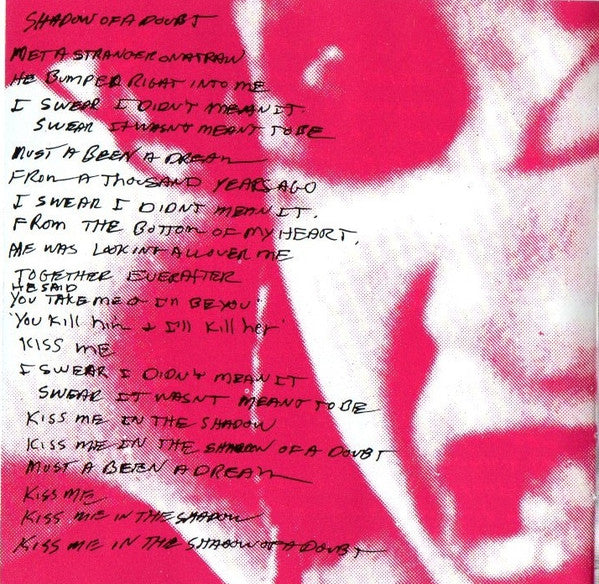 SHADOW OF A DOUBT
MET A STRANGER ON A TRAIN
HE BUMPED RIGHT INTO ME
I SWEAR I DIDN'T MEAN IT.
SWEAR IT WASN'T MEANT TO BE
MUST A BEEN A DREAM
FROM A THOUSAND YEARS AGO
I SWEAR I DIDNT MEAN IT.
FROM THE BOTTOM OF MY HEART.
HE WAS LOOKINT ALL OVER ME
TOGETHER EVERAFTER
HE SAID
YOU TAKE ME & I'LL BE YOU'
'You Kill him & I'll Kill her'
KISS ME
I SWEAR I DIDN'T MEAN IT
SWEAR IT WASNT MEANT TO BE
KISS ME IN THE SHADOW
KISS ME IN THE SHADOW OF A DOUBT
MUST A BEEN A DREAM
KISS ME
KISS ME IN THE SHADOW
KISS ME IN THE SHADOW OF A DOUBT